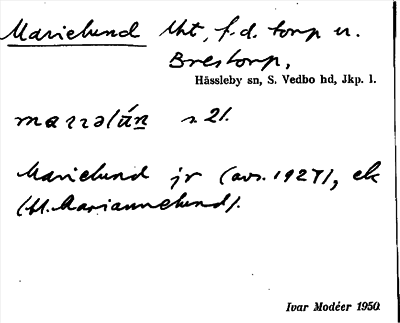 Marielund lht, f.d. torp u.
Brestorp,
Hässleby sn, S. Vedbo hd, Jkp. l.
s. 21.
Marielund jr (avs. 1927), ek
(bl. Mariannelund).
Ivar Modéer 1950